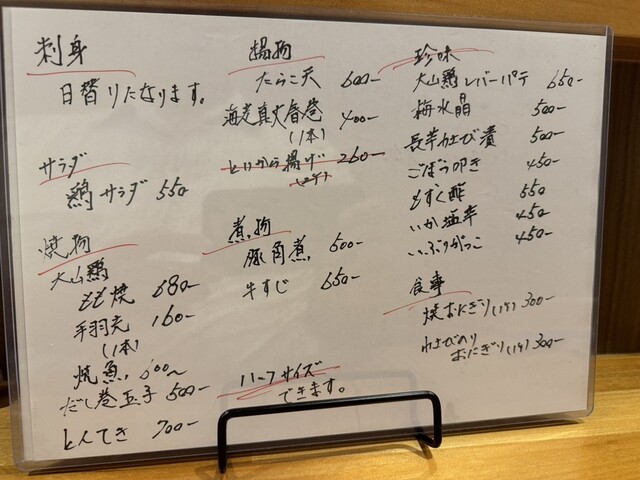 刺身
日替りになります。
サラダ
鶏サラダ 550
焼物
大山鶏
もも焼 680-
手羽先 160-
(1本)
焼魚 600~
だし巻玉子 500-
とんてき 700-
揚物
たらこ天 600-
海老真丈春巻 400-
(1本)
とりから揚げ 260-
煮物
豚角煮 500-
牛すじ 650-
ハーフサイズ
できます。
珍味
大山鶏レバーパテ 650-
梅水晶 500-
長芋わさび漬 500-
ごぼう叩き 450-
もずく酢 550
いか塩辛 450-
いぶりがっこ 450-
食事
焼おにぎり(1ヶ) 300-
わさびのり
おにぎり(1ヶ) 300-